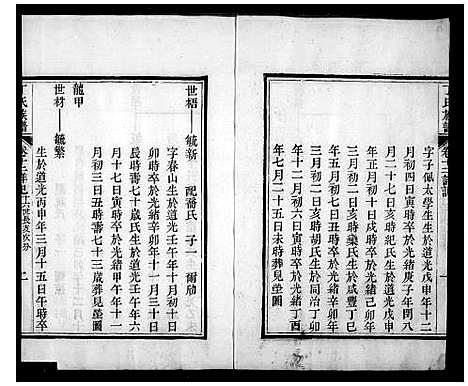 丁氏族譜
字子佩太學生生於道光戊申年十二
月初四日寅時卒於光緒庚子年閏八
月十七日亥時配紀氏生於道光己酉年
正月初十日戌時卒於光緒己卯年
三月初二日亥時欒氏生於咸豐丁巳
三月初二日亥時胡氏生於同治丁卯
年十二月初六日寅時卒於光緒丁酉
年七月二十五日未時葬見塋圖
世梧 毓新 配喬氏 子一 爾
字春山生於道光壬午年十月初十日
卯時卒於光緒辛卯年十一月三十日
辰時壽七十歲氏生於道光壬午年六
月十七日寅時卒於光緒甲午年十一
月初三日丑時壽七十三歲葬見塋圖
龍甲
世材 毓繁
生於道光丙申年三月十五日午時卒
氏族譜